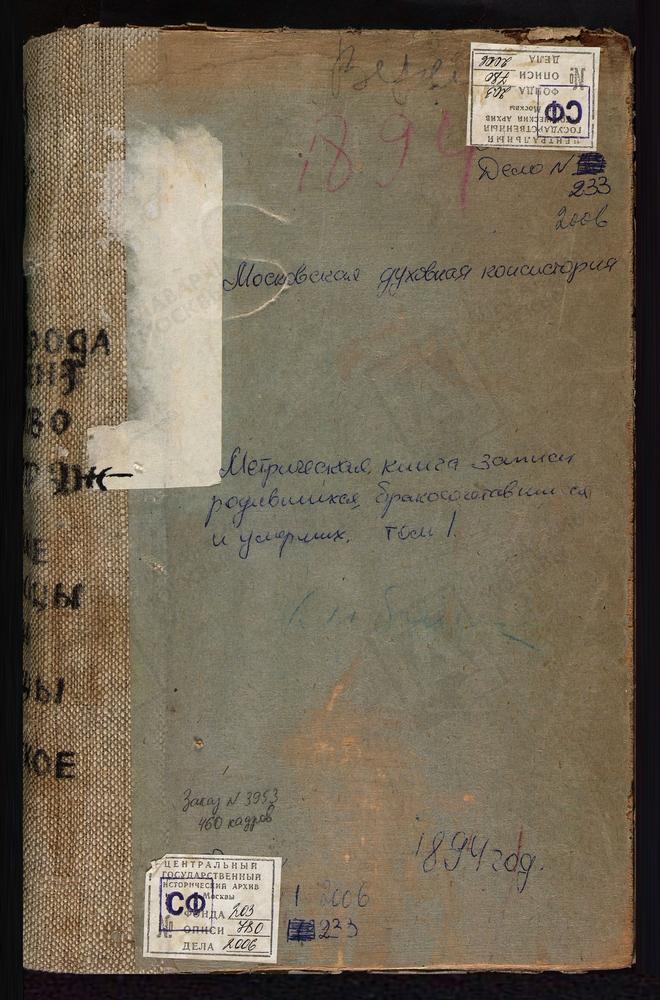 1894
ЦЕНТРАЛЬНЫЙ
ГОСУДАРСТВЕННЫЙ
ИСТОРИЧЕСКИЙ АРХИВ
Москвы
СФ
ФОНДА 203
№ ОПИСИ 780
ДЕЛА 2006
Дело N
233
2006
Московская духовная консистория
Метрическая книга записи
родившихся, бракосочетавшихся
и умерших. том 1.
Заказ N 3953
460 кадров
1894 год.
1 2006
223
ЦЕНТРАЛЬНЫЙ
ГОСУДАРСТВЕННЫЙ
ИСТОРИЧЕСКИЙ АРХИВ
Москвы
СФ
ФОНДА 203
№ ОПИСИ 780
ДЕЛА 2006